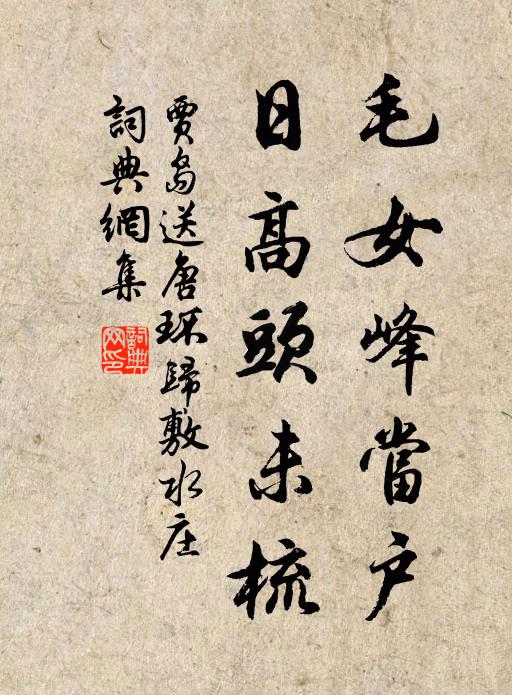 毛女峰當户
日高頭未梳
賈島送唐环歸敷水庄
詞典網集
詞典网印